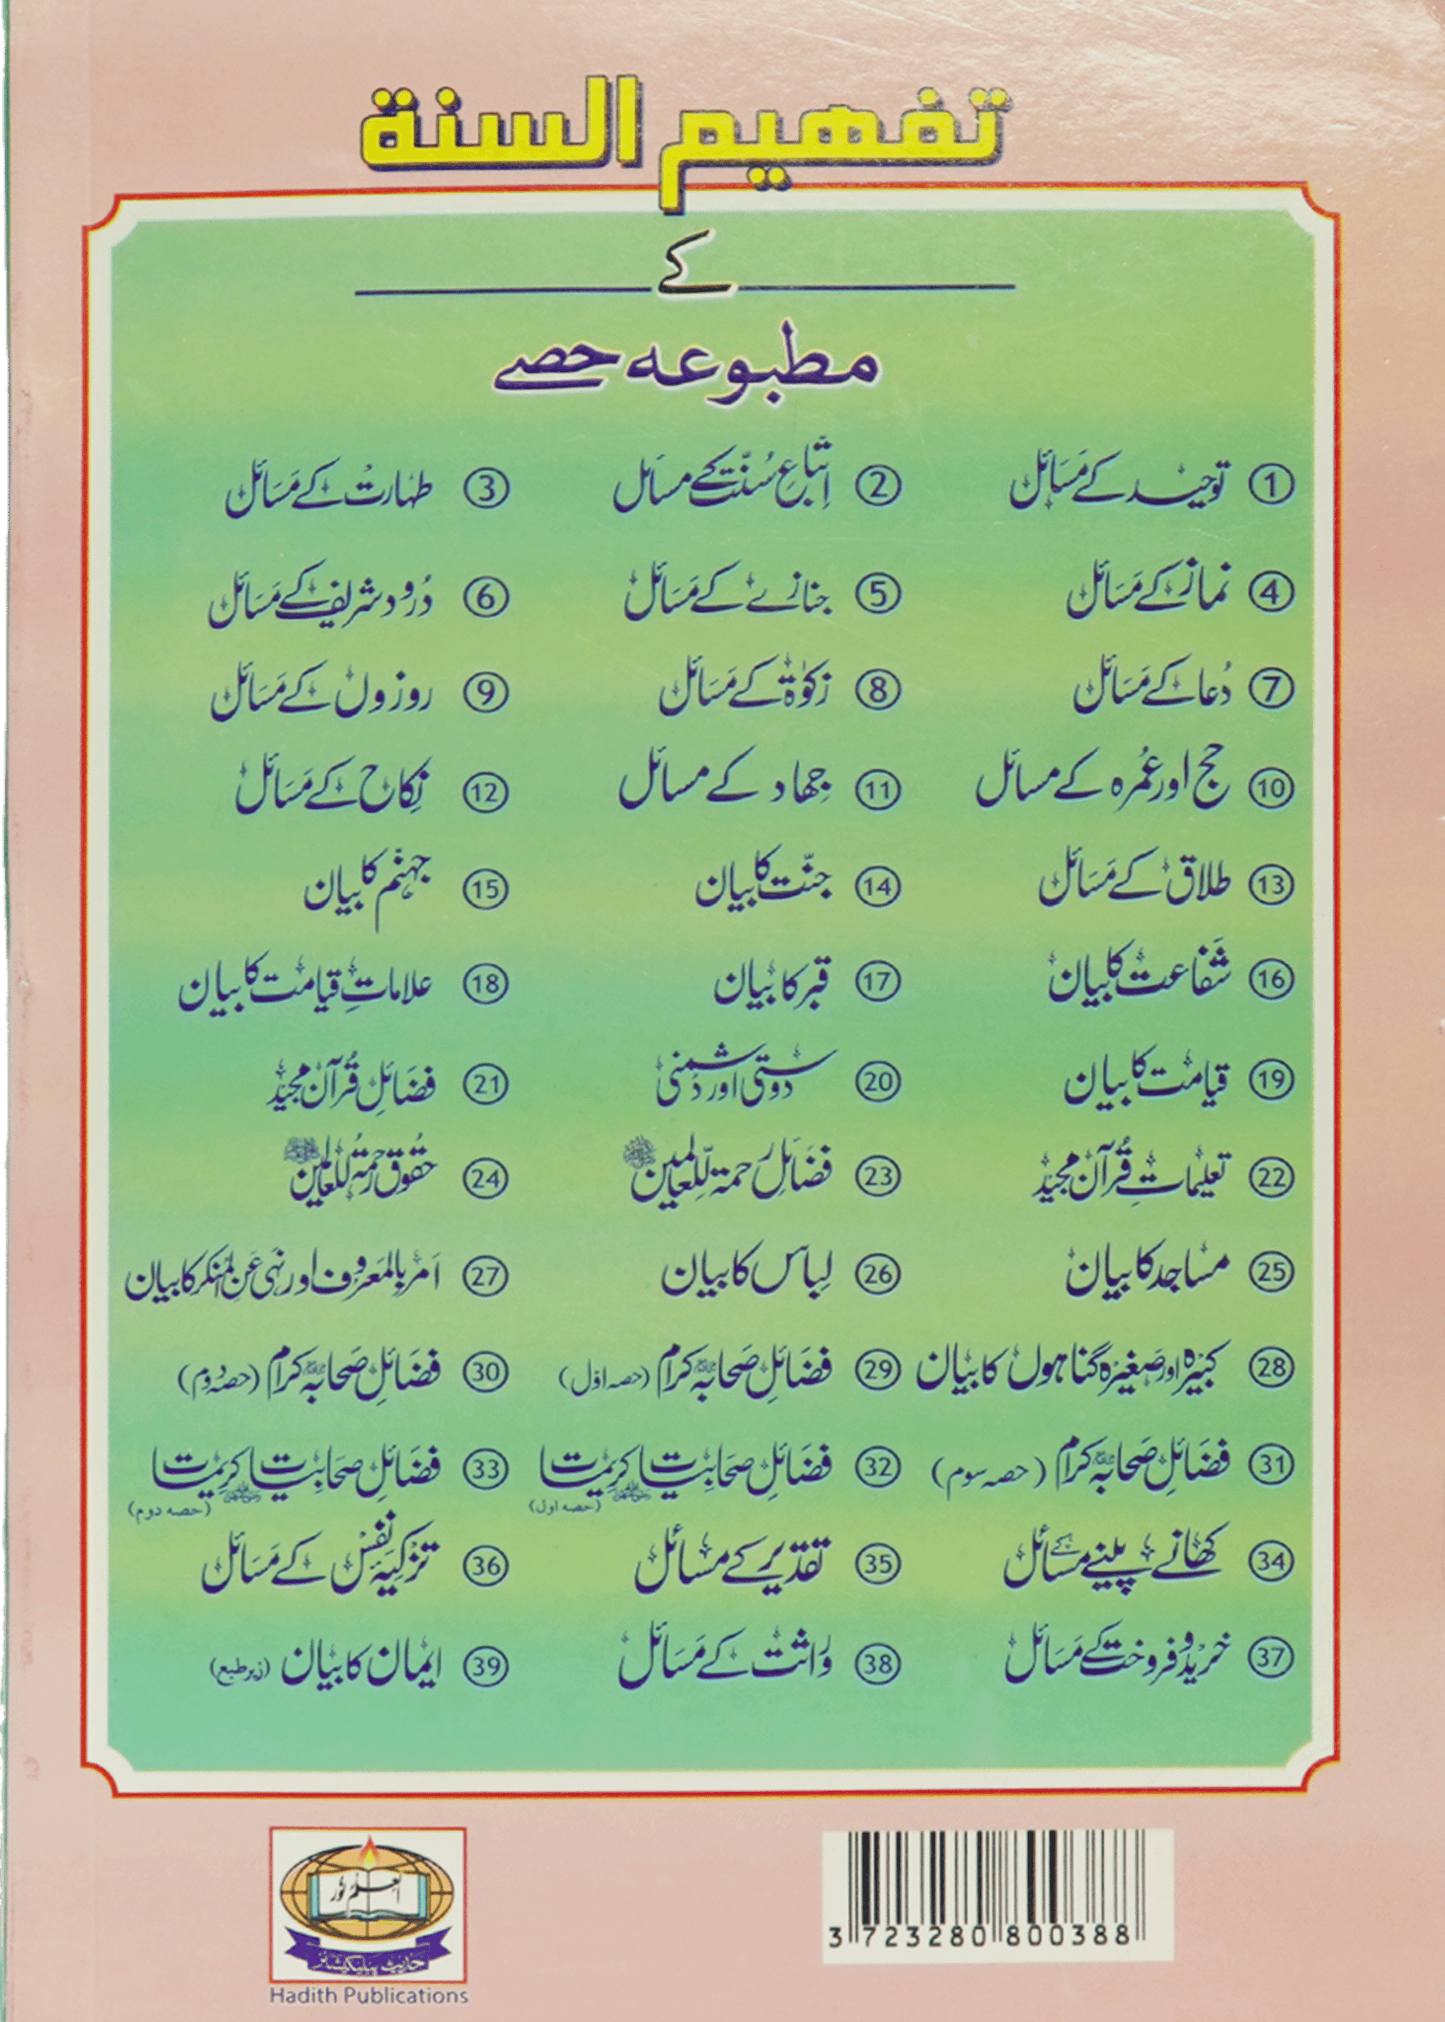 تفهيم السنة
کے
مطبوعہ حصے
① توحید کے مَسَائل ② اِتّباعِ سُنّت کے مسائل ③ طہارت کے مَسَائل
④ نماز کے مَسَائل ⑤ جنازے کے مَسَائل ⑥ دُرود شریف کے مَسَائل
⑦ دُعا کے مَسَائل ⑧ زکوٰۃ کے مَسَائل ⑨ روزوں کے مَسَائل
⑩ حج اور عُمرہ کے مسائل ⑪ جِهاد کے مسائل ⑫ نِکاح کے مَسَائل
⑬ طلاق کے مَسَائل ⑭ جنّت کا بیان ⑮ جہنّم کا بیان
⑯ شفاعت کا بیان ⑰ قبر کا بیان ⑱ علاماتِ قیامت کا بیان
⑲ قیامت کا بیان ⑳ دوستی اور دُشمنی ㉑ فضَائلِ قُرآن مجید
㉒ تعلیماتِ قُرآن مجید ㉓ فضَائلِ رحمۃ لِّلعالمین ﷺ ㉔ حقُوق رحمۃ للعالمین ﷺ
㉕ مسَاجد کا بیان ㉖ لِباس کا بیان ㉗ اَمر بالمَعرُوف اور نہی عَنِ المُنکر کا بیان
㉘ کبیرہ اور صَغیرہ گناہوں کا بیان ㉙ فضَائلِ صَحابہ کرام (حصہ اوّل) ㉚ فضَائلِ صَحابہ کرام (حصہ دُوم)
㉛ فضَائلِ صَحابہ کرام (حصہ سوم) ㉜ فضَائلِ صحَابیات کریمات (حصہ اول) ㉝ فضَائلِ صحَابیات کریمات (حصہ دوم)
㉞ کھانے پینے کے مسَائل ㉟ تقدیر کے مسَائل ㊱ تزکیہ نفس کے مَسَائل
㊲ خرید و فروخت کے مَسَائل ㊳ وراثت کے مَسَائل ㊴ ایمان کا بیان (زیر طبع)
العلم نور
حدیث پبلیکیشنز
Hadith Publications
3 723280 800388